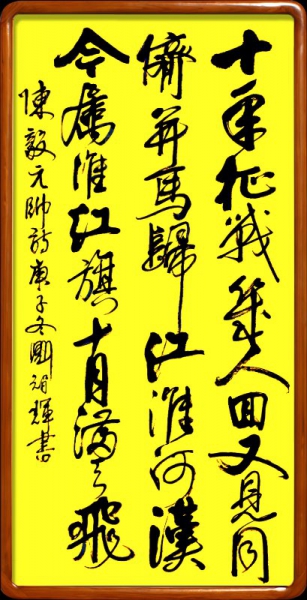 十年征戰幾人回又見同
儕并馬歸江淮河漢
今屬誰紅旗十月滿天飛
陳毅元帥詩庚子冬輝書